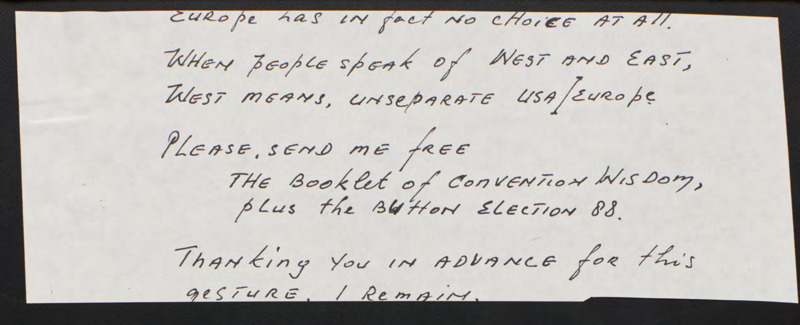 EUROPE HAS IN fact NO CHOICE AT All.
WHEN PEOPLE SPEAK of WEST AND EAST,
WEST MEANS, UNSEPARATE USA/EUROPE
PLEASE, SEND ME fREE
THE BOOKlet of CONVENTION WISDOM,
plus the BUttON ELECTION 88.
THANKing YOU IN ADVANCE foR this
gESTURE, I REMAIN.